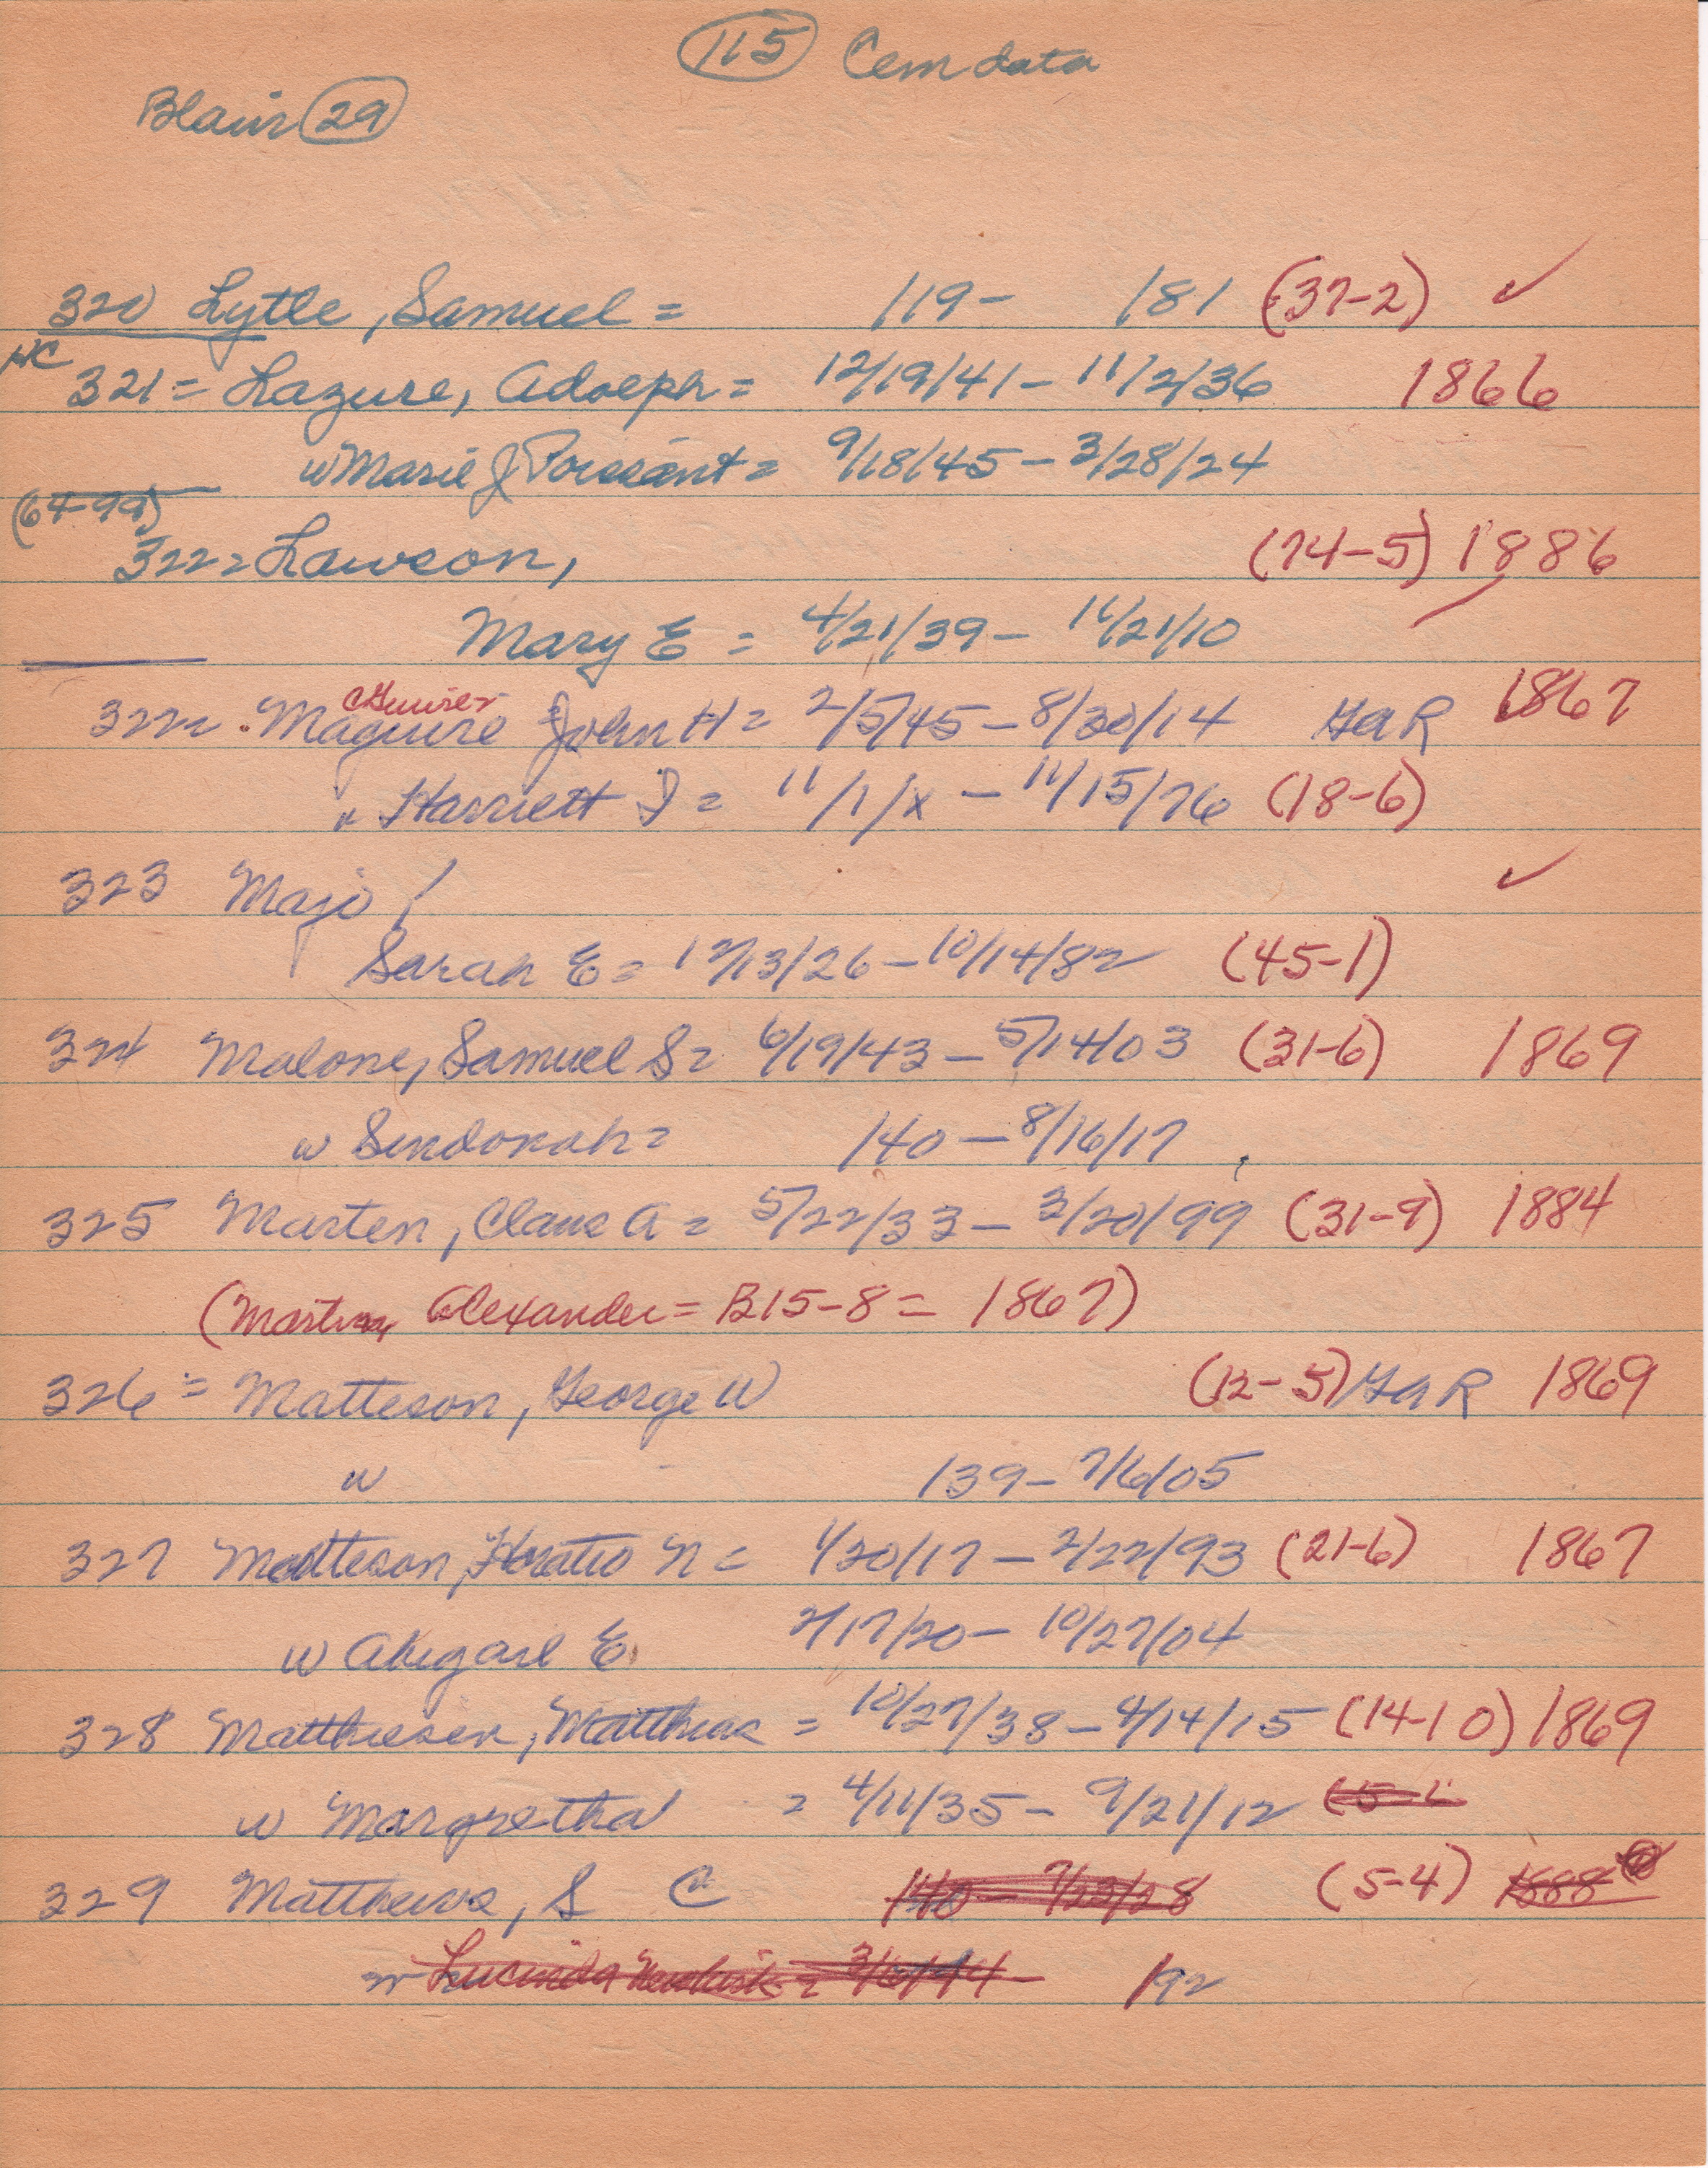 115 Cem data
Blair 29
320 Lytle, Samuel = /19 - /81 (37-2) ✓
NC
321 = Lazure, Adolph = 12/19/41 - 11/2/36 1866
w Marie J Poissant = 9/18/45 - 3/28/24
(64-99)
322 = Lawson, (74-5) 1886
Mary E = 4/21/39 - 11/21/10
cGuire
322 Maguire John H = 2/5/45 - 8/30/14 GAR 1867
w Harriett I = 11/1/x - 11/15/76 (18-6)
323 Majo, ✓
Sarah E = 12/13/26 - 10/14/82 (45-1)
324 Malone, Samuel S = 6/19/43 - 5/14/03 (31-6) 1869
w Sendorah = /40 - 8/16/17
325 Marten, Claus A = 5/22/33 - 3/20/99 (31-9) 1884
(Martin, Alexander = B15-8 = 1867)
326 = Matteson, George W (12-5) GAR 1869
w /39 - 7/6/05
327 Matteson, Horatio N = 1/20/17 - 2/22/93 (21-6) 1867
w Abigail E 2/17/20 - 10/27/04
328 Matthiesen, Matthias = 10/27/38 - 4/14/15 (14-10) 1869
w Margretha = 4/11/35 - 9/21/12 (5-
329 Matthews, S C /40 - 7/23/28 (5-4) 1888
w Lucinda = 3/6/44 - /92